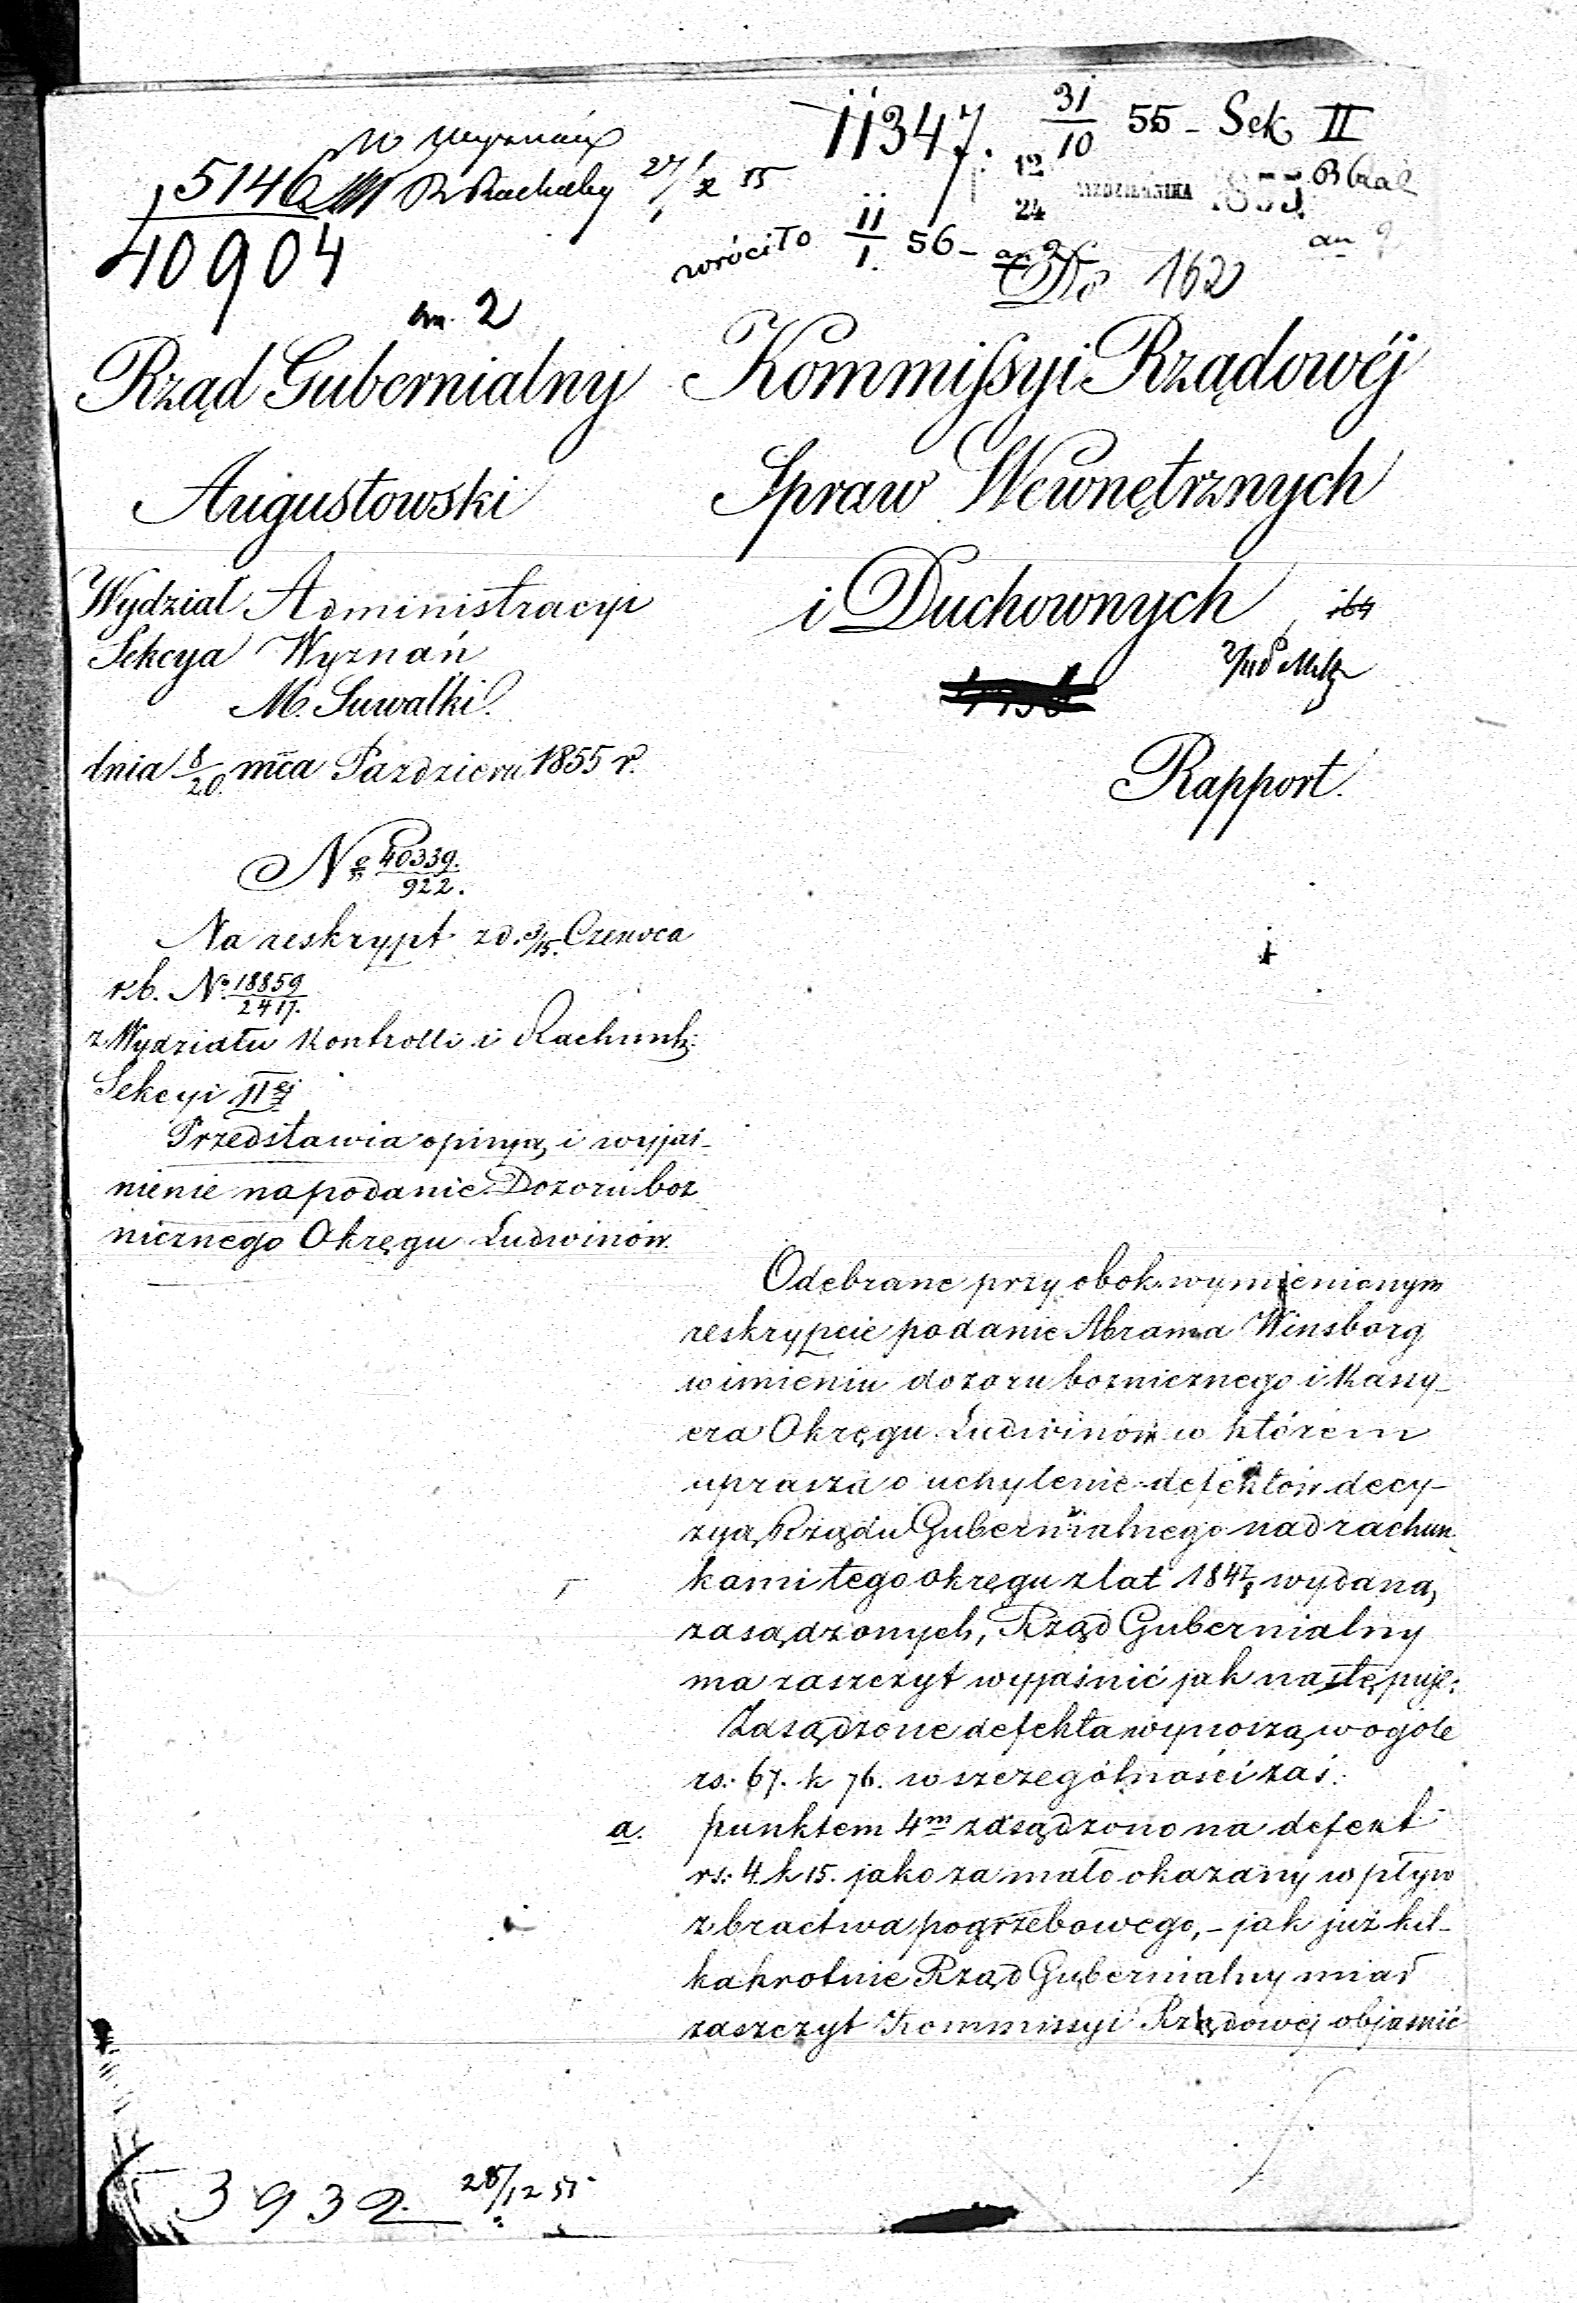 11347. 31/10 55 - Sek II
5146
27/X 55
12/24 PAŹDZIERNIKA 1855
40904
wróciło 11/1. 56 -
an. 2
Do 162
Rząd Gubernialny
Augustowski
Wydział Administracyi
Sekcya Wyznań
M. Suwałki.
dnia 8/20. mca Pazdziern 1855 r.
No 40339./922.
Na reskrypt z d. 3/15. Czerwca
r.b. No 18859/2417.
z Wydziału Kontrolli i Rachunk:
Sekcyi IIej
Przedstawia opinyą i wyjaś-
nienie na podanie Dozoru boż
nicznego Okręgu Ludwinów.
Kommissyi Rządowéj
Spraw Wewnętrznych
i Duchownych
164
Rapport.
Odebrane przy obok wymienionym
reskrypcie podanie Abrama Winsborg
w imieniu dozoru bożnicznego i Kassy-
era Okręgu Ludwinów w którem
uprasza o uchylenie defektów decy-
zyą Rządu Gubernialnego nad rachun
kami tego okręgu z lat 184 wydaną
zasądzonych, Rząd Gubernialny
ma zaszczyt wyjaśnić jak następuje:
Zasądzone defekta wynoszą w ogóle
rs: 67. k 76. w szczególności zaś:
a. punktem 4m zasądzono na defekt
rs: 4 k 15. jako za mało okazany wpływ
z bractwa pogrzebowego, - jak już kil-
kakrotnie Rząd Gubernialny miał
zaszczyt Kommissyi Rządowéj objaśnić
3932. 28/12 55